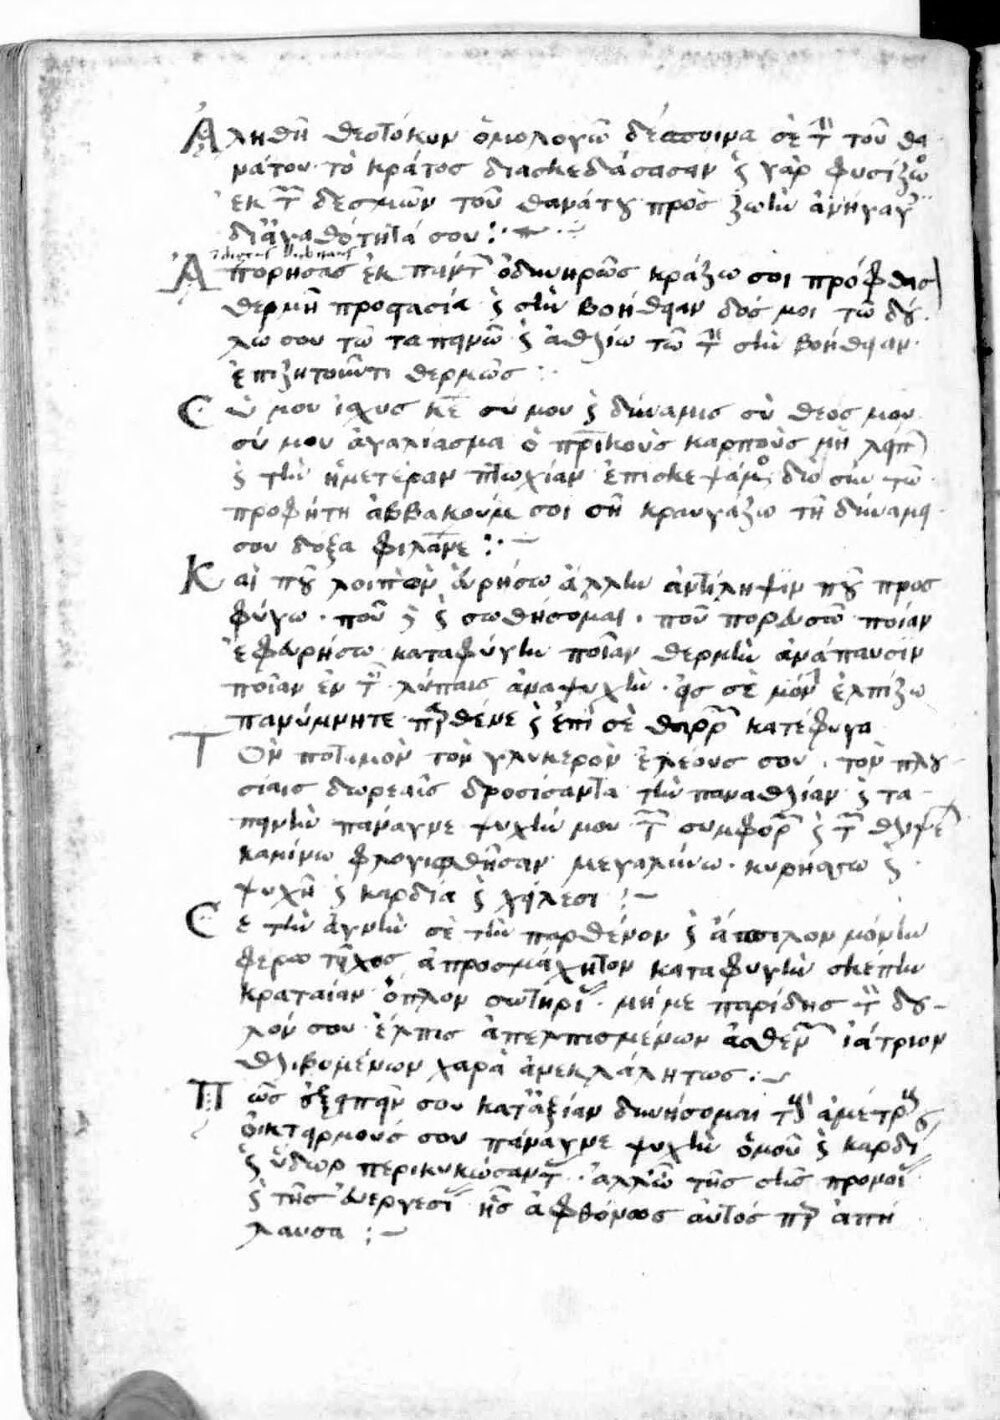 Ἀληθῆ θεοτόκον ὁμολογῶ δέσποινα σὲ τ̀ τοῦ θα
νάτου τὸ κράτος διασκεδάσασαν ϗ γὰρ φυσίζωο
ἐκ τ̃ δεσμῶν τοῦ θανάτȣ πρὸς ζωὴν ἀνήγαγ
δι ἀγαθότητά σου :
Ἀπορήσας ἐκ πάντ ὀδυνηρῶς κράζω σοι πρόφθασ
θερμὴ προστασία ϗ σὴν βοήθειαν δός μοι τῶ δȣ
λω σου τῶ ταπεινῶ ϗ ἀθλίω τῶ τ̀ σὴν βοήθειαν
ἐπιζητοῦντι θερμῶς :
Σύ μου ἰσχυς κε σύ μου ϗ δύναμις σὺ θεός μου
σύ μου ἀγαλίασμα ὁ πρικοὺς καρποὺς μὴ λιπ
ϗ τὴν ἡμετέραν πτωχίαν ἐπισκεψάμ διὸ σὺν τῶ
προφήτη ἀββακούμ σοι σῆ κραυγάζω τῆ δύναμει
σου δοξα φιλανε :
Καὶ πȣ λοιπὸν εὑρήσω ἄλλην ἀντίληψιν πȣ προσ
φύγω · ποῦ ϗ ϗ σωθήσομαι · ποῦ πορευσῶ ποίαν
ἐφευρήσω καταφύγην ποῖαν θερμὴν ἀνάπαυσιν
ποῖαν ἐν τ λύπαις ἀναψυχὴν · εἰς σὲ μόν ἐλπίζω
πανύμνητε πρθένε ϗ ἐπὶ σὲ θαρρ κατέφυγα
Τὸν ποταμὸν τὸν γλυκερὸν ἐλέους σου · τὸν πλȣ
σίαις δωρεαῖς δροσίσαντα τὴν παναθλίαν ϗ τα
πεινὴν πάναγνε ψυχήν μου τ̃ συμφορ ϗ τ̃ θλίψε
καμίνω φλογισθῆσαν μεγαλύνω · κυρήττω ϗ
ψυχῆ ϗ καρδία ϗ χείλεσι :
Σε τὴν ἁγνὴν σὲ τὴν παρθένον ϗ ἄσπιλον μόνην
φέρω τεῖχος ἀπροσμάχητον καταφυγὴν σκέπην
κραταίαν ὅπλον σωτηρί · μή με παρίδης τ̀ δȣ
λόν σου ἐλπὶς ἀπελπισμένων ἀσθεν ἰάτριον
θλιβομένων χαρὰ ἀνεκλάλητως :
Πῶς ἐξειπεῖν σου κατ ἀξίαν δυνήσομαι τȣς ἀμέτρȣς
οἰκτειρμούς σου πάναγνε ψυχὴν ὁμοῦ ϗ καρδί
ϗ ὕδωρ περικυκώσαντ · ἀλλὰ τῆς σῆς προνοί
ϗ τῆς εὐεργεσί ἧς ἀφθόνως αὐτός πρ ἀπή
λαυσα :